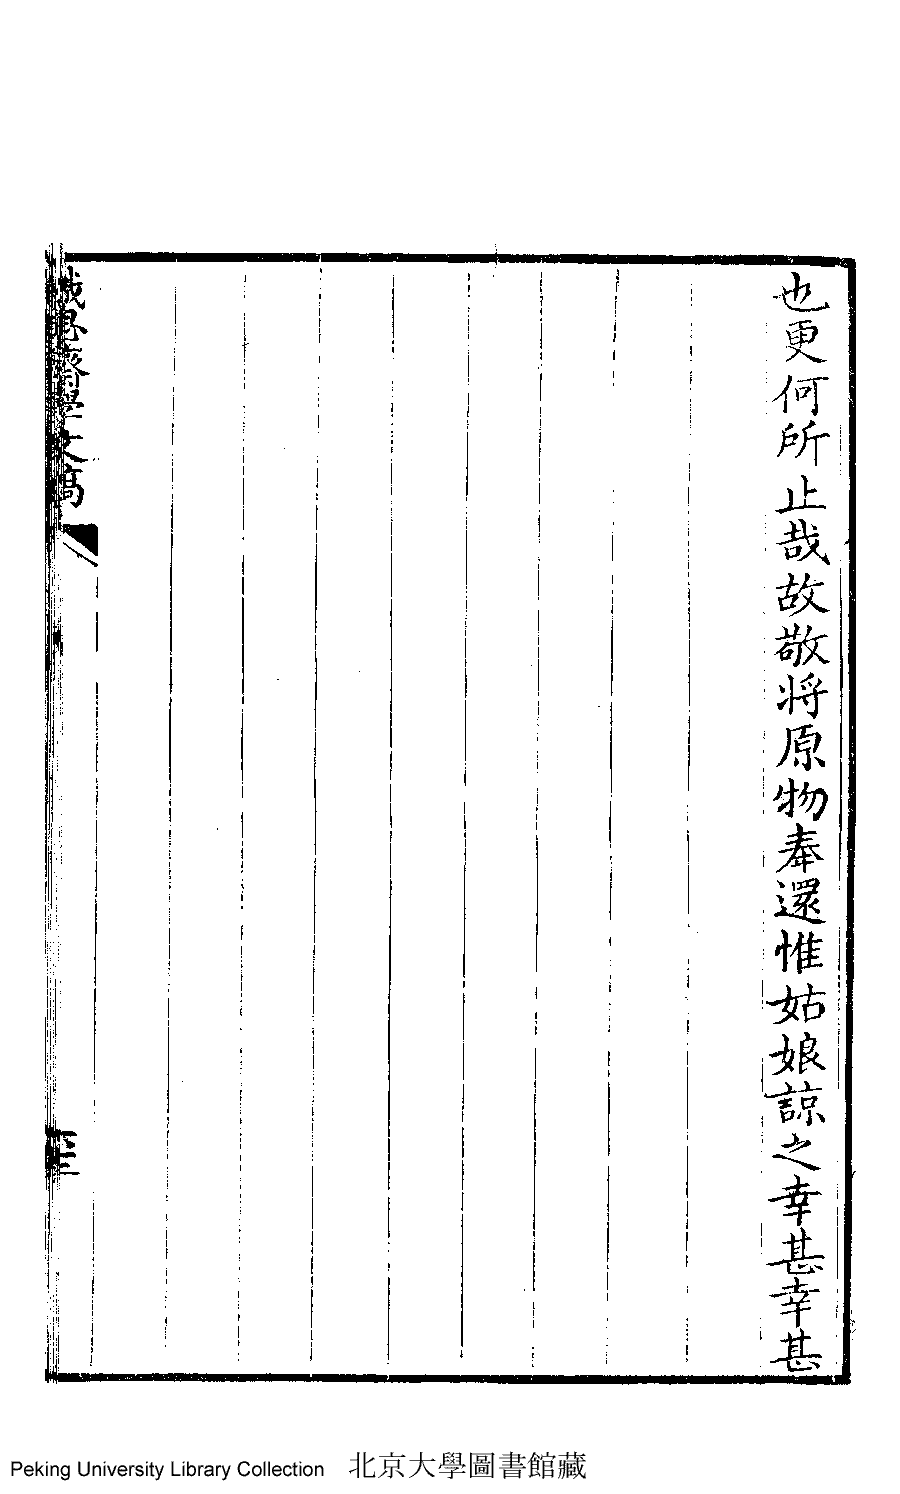 也更何所止哉故敬將原物奉還惟姑娘諒之幸甚幸甚
誠思齋學文稿
Peking University Library Collection 北京大學圖書館藏